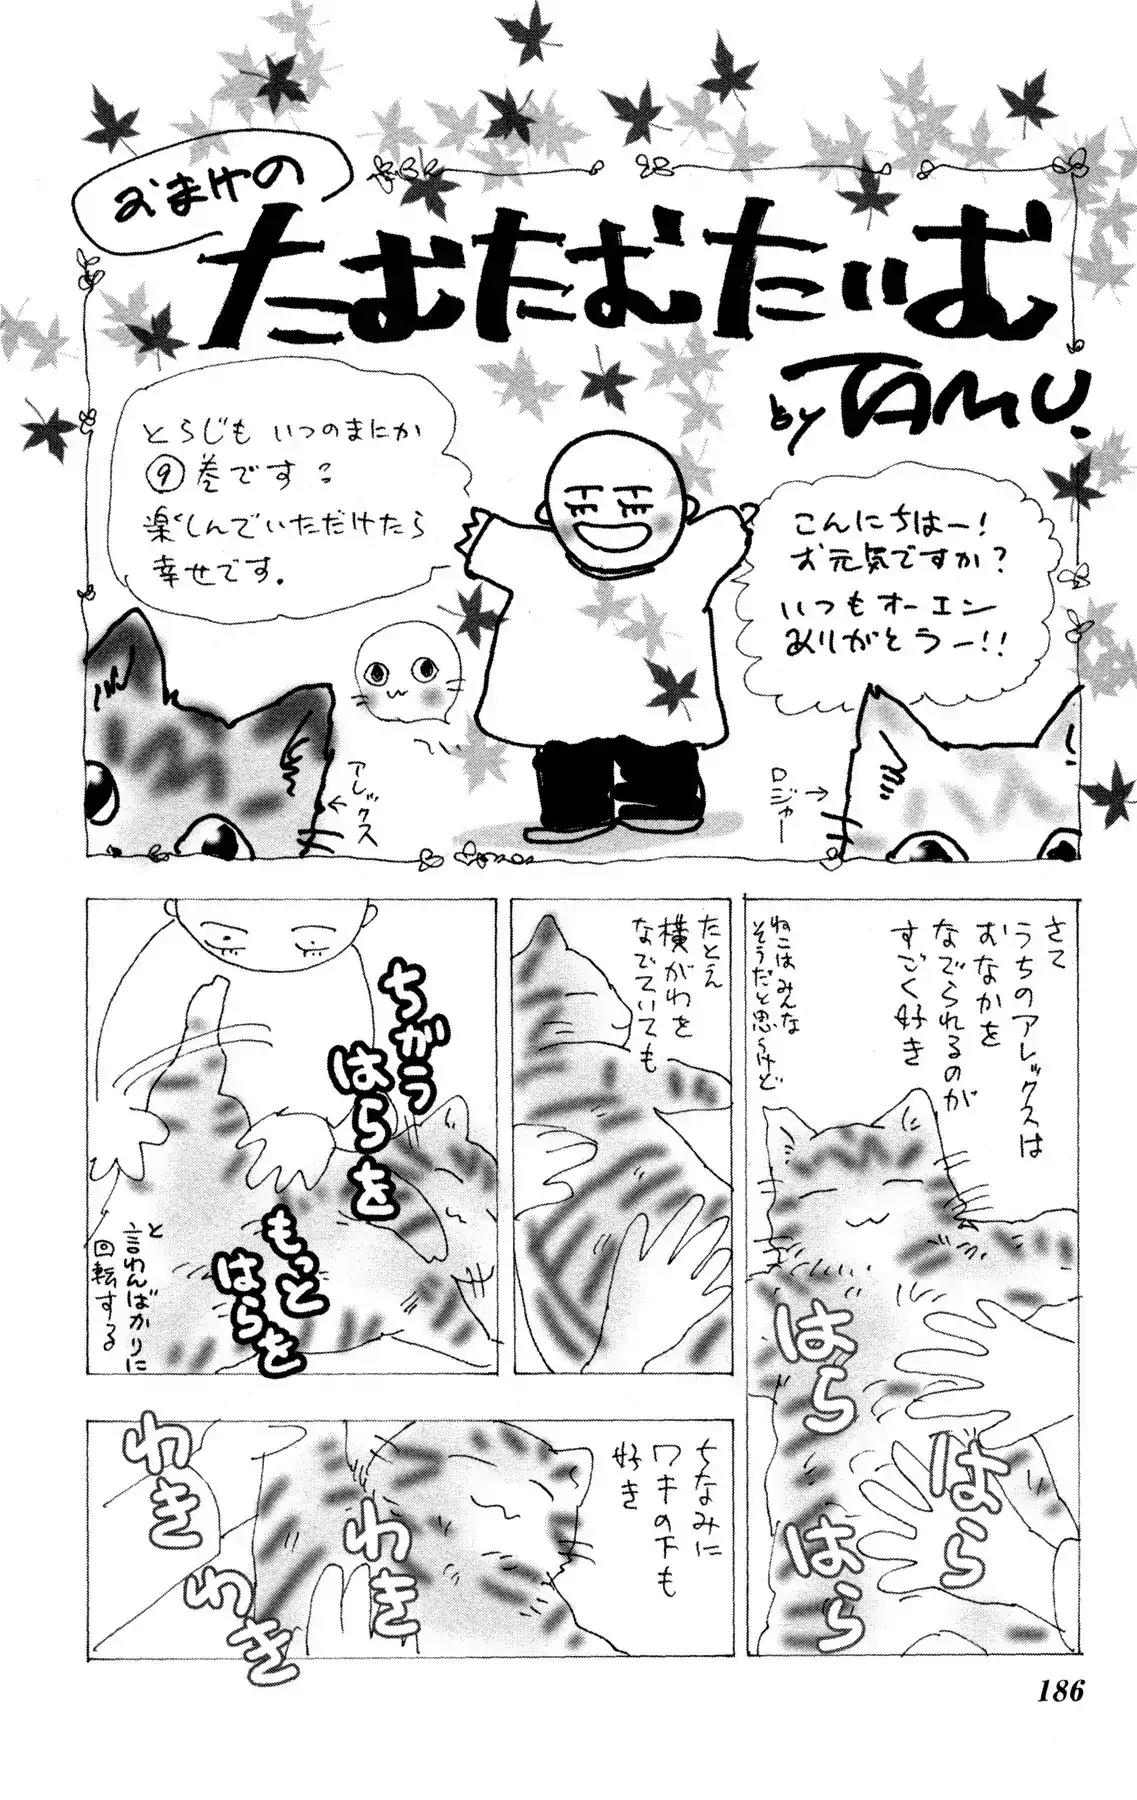 おまけの
たむたむたいむ
by TAMU.
こんにちはー!
お元気ですか?
いつもオーエン
ありがとうー!!
とらじも いつのまにか
⑨巻です?
楽しんでいただけたら
幸せです.
てい
アレックス
ロジャー
さて
うちのアレックスは
おなかを
なでられるのが
すごく好き
ねこはみんな
そうだと思うけど
はら
はら
はら
たとえ
横がわを
なでていても
ちがう
はらを
もっと
はらを
と
言わんばかりに
回転する
ちなみに
ワキの下も
好き
わき
わき
わき
186